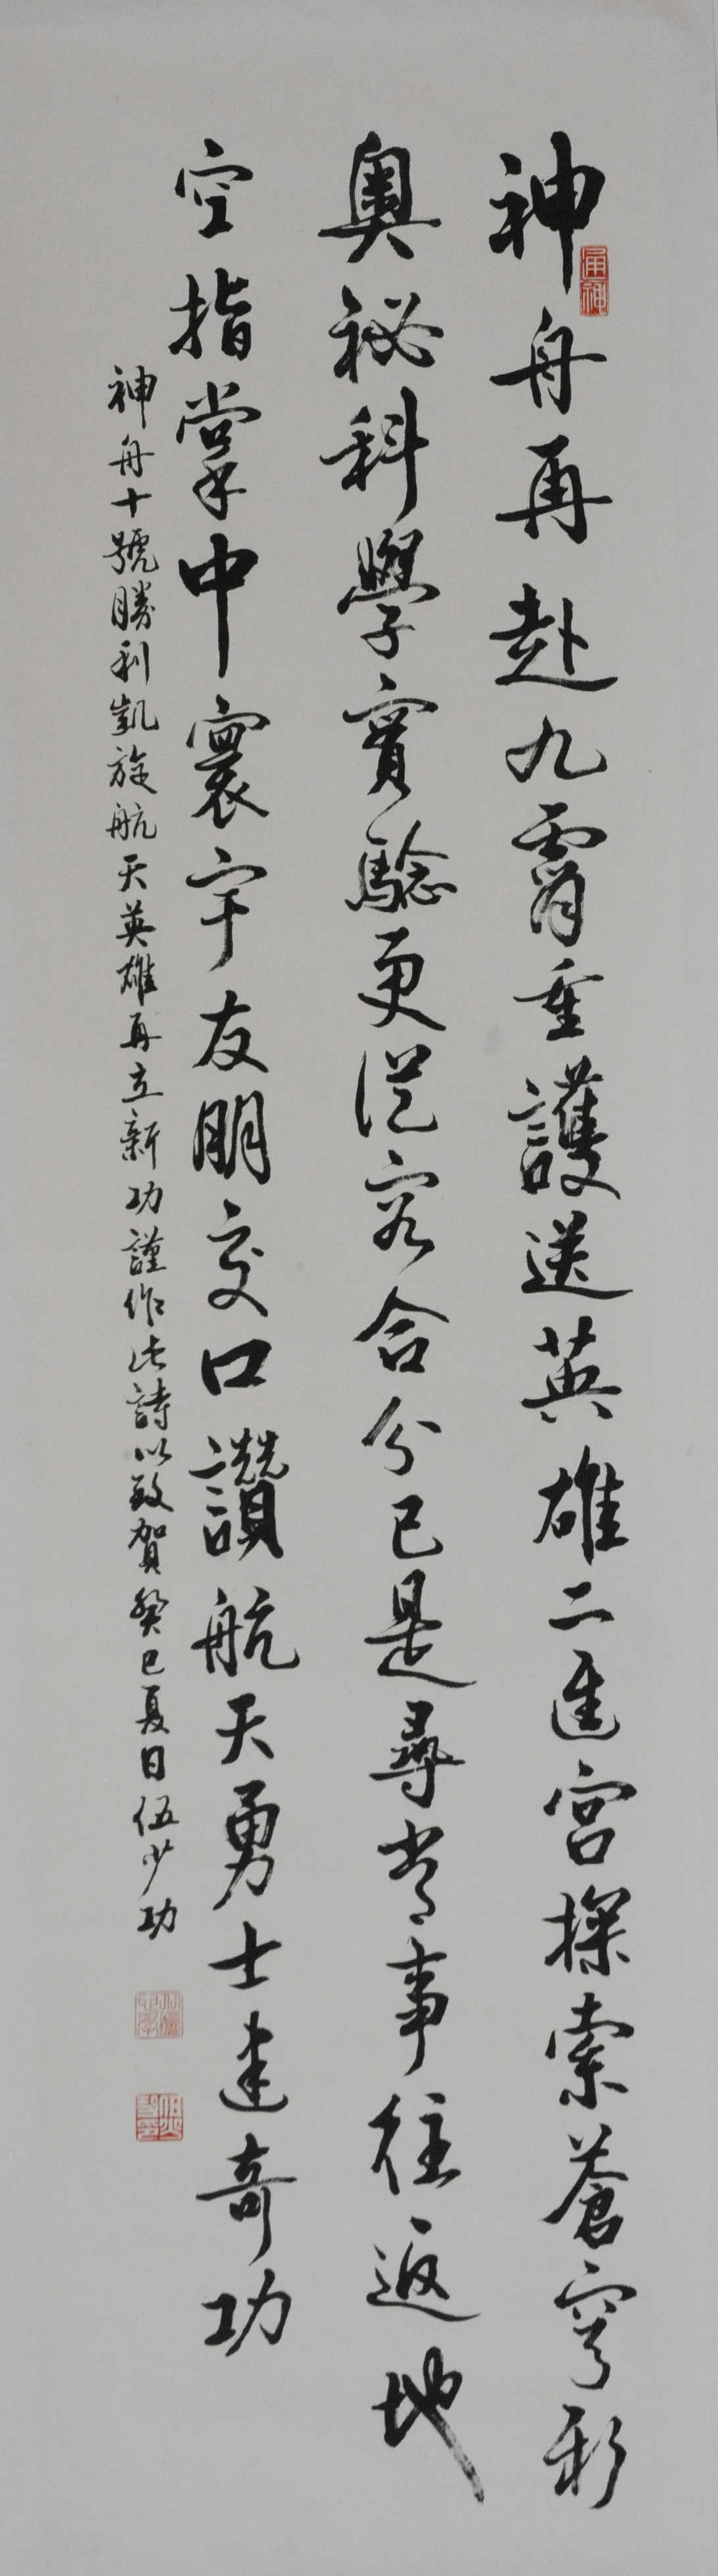 神舟再赴九霄重護送英雄二進宮探索蒼穹新
奧祕科學實驗更從容合分已是尋常事往返地
空指掌中寰宇友朋交口讚航天勇士建奇功
神舟十號勝利凱旋航天英雄再立新功謹作此詩以致賀癸巳夏日伍少功